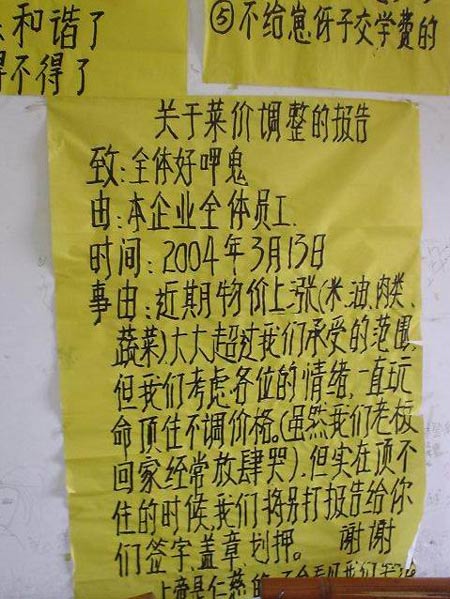 和谐了
不得了
⑤不给崽伢子交学费的
关于菜价调整的报告
致:全体好呷鬼
由:本企业全体员工.
时间:2004年3月13日
事由:近期物价上涨(米、油、肉类、
蔬菜)大大超过我们承受的范围,
但我们考虑各位的情绪,一直玩
命顶住不调价格。(虽然我们老板
回家经常放肆哭).但实在顶不
住的时候,我们将另打报告给你
们签字、盖章、划押。 谢谢
上帝是仁慈的